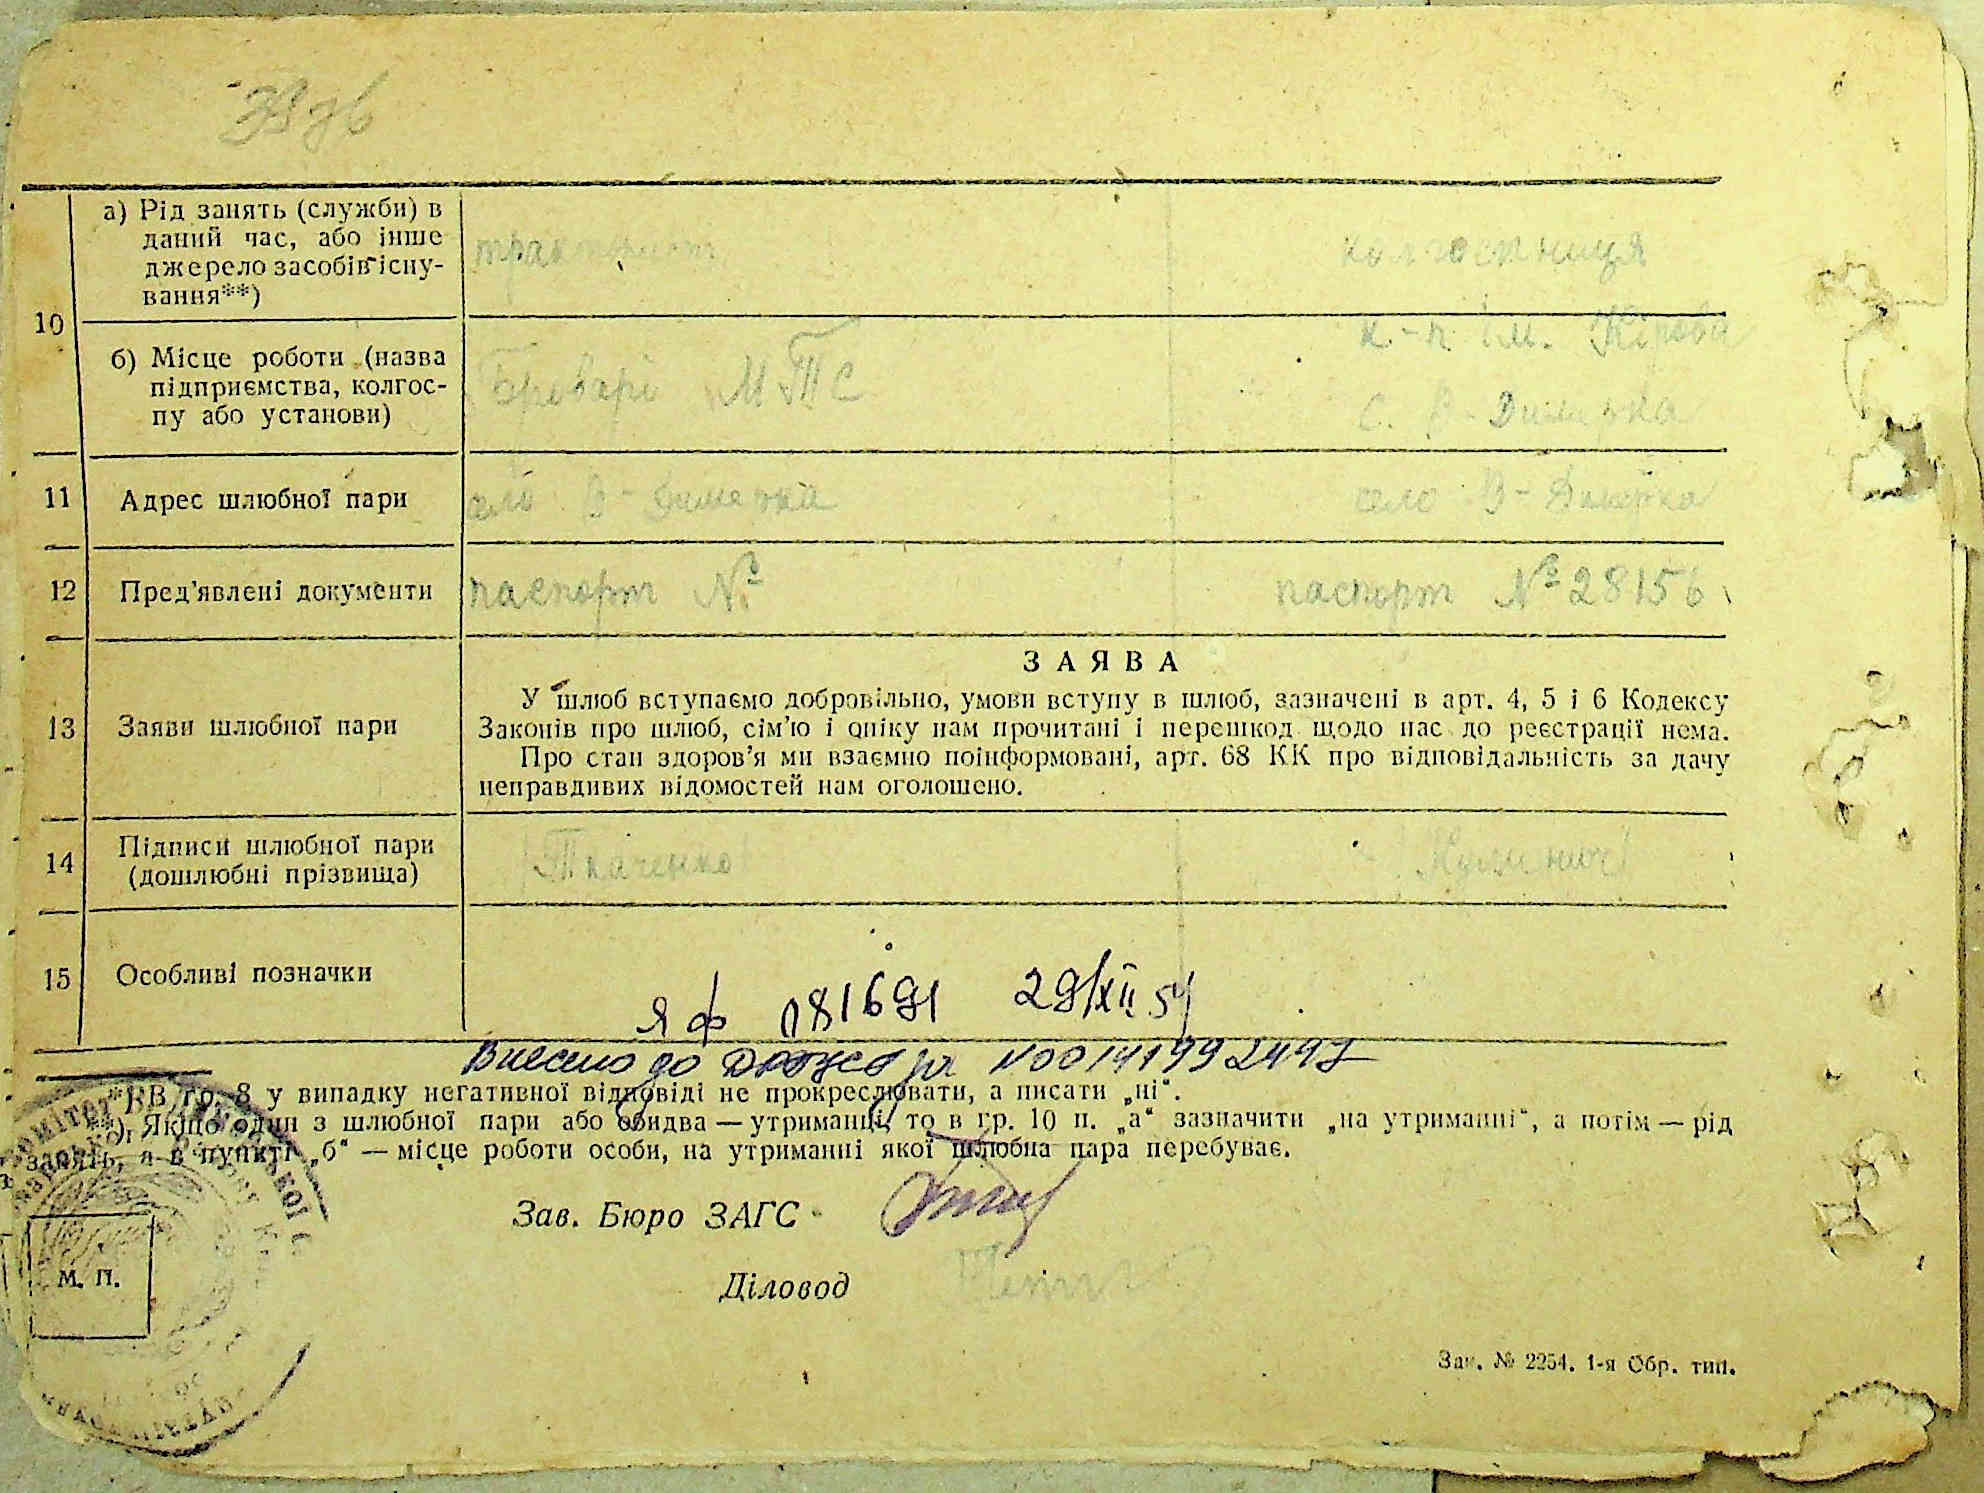 а) Рід занять (служби) в
даний час, або інше
джерело засобів існу-
вання**)
тракторист
колгоспниця
10
б) Місце роботи (назва
підприємства, колгос-
пу або установи)
Броварі МТС
к-п ім. Кірова
с. В-Димерка
11
Адрес шлюбної пари
село В-Димерка
село В-Димерка
12
Пред’явлені документи
паспорт №
паспорт № 28156
ЗАЯВА
13
Заяви шлюбної пари
У шлюб вступаємо добровільно, умови вступу в шлюб, зазначені в арт. 4, 5 і 6 Кодексу
Законів про шлюб, сім’ю і опіку нам прочитані і перешкод щодо нас до реєстрації нема.
Про стан здоров’я ми взаємно поінформовані, арт. 68 КК про відповідальність за дачу
неправдивих відомостей нам оголошено.
14
Підписи шлюбної пари
(дошлюбні прізвища)
Ткаченко
15
Особливі позначки
Я ф 081691 29/XII 54
Внесено до
*) В гр. 8 у випадку негативної відповіді не прокреслювати, а писати „ні“.
**) Якщо один з шлюбної пари або обидва — утриманці, то в гр. 10 п. „а“ зазначити „на утриманні“, а потім — рід
занять, а в пункті „б“ — місце роботи особи, на утриманні якої шлюбна пара перебуває.
Зав. Бюро ЗАГС
М. П.
Діловод
Зак. № 2254. 1-я Обр. тип.